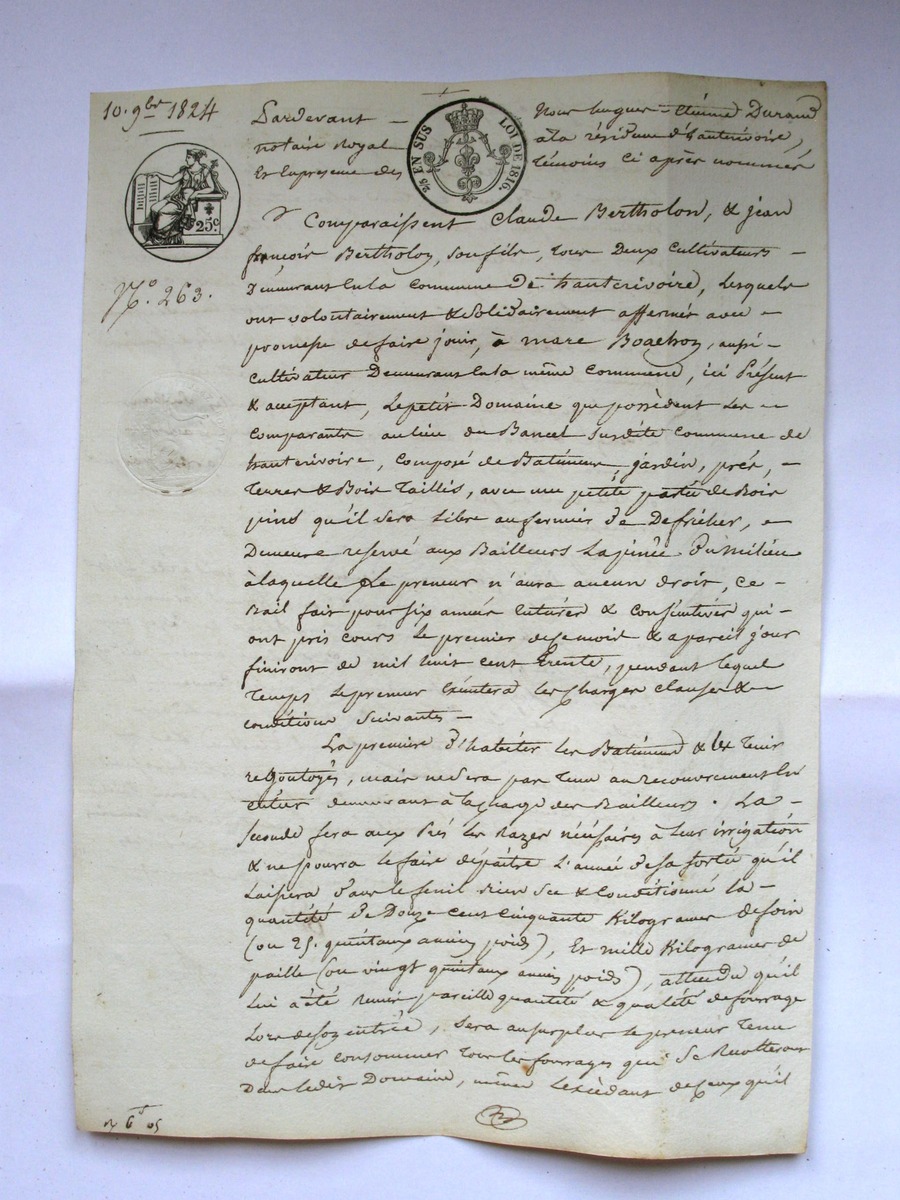 10. 9bre 1824
Pardevant – Nous hugues – Etienne Durand
notaire Royal à la résidence d'hauterivoire,
Et En presence des témoins Ci après nommés
2/5 EN SUS
LOI DE 1816.
25c
N°. 263.
Comparaissent Claude Bertholon, & jean
françois Bertholon, son fils, tous Deux Cultivateurs –
Demeurant En la Commune De hauterivoire, Lesquels
ont volontairement & Solidairement affermés avec –
promesse de faire jouir, à marc, aussi –
Cultivateur Demeurant En la même Commune, ici Présent
& acceptant, Le petit Domaine que possèdent Les –
Comparants au lieu du Bancel Susdite Commune de
hauterivoire, Composé de Batiments, jardin, prés, –
Terres & Bois Taillis, avec une petite partie de Bois
pins qu'il sera Libre au fermier De Defricher, –
Demeure reservé aux Bailleurs La pinée Du milieu
à laquelle Le preneur n'aura aucun droit, ce –
Bail fait pour six années Entières & Consécutives qui –
ont pris cours le premier de ce mois & a pareil jour
finiront de mil huit cent Trente, pendant lequel
Temps Le preneur Exécutera les Charges clauses & –
conditions Suivantes –
La premiere d'habiter les Batiments & les Tenir
regoutoyés, mais ne Sera pas Tenu au recouvrement En
Entier demeurant à la charge des Bailleurs. La –
Seconde fera aux Prés les Razes nécessaires à leur irrigation
& ne pourra les faire dépaitre L'année de sa sortie qu'il
Laissera dans le fenil bien sec & Conditionné la –
quantité De Douze cent Cinquante Kilogrames de foin
(ou 25. quintaux ancien poids), Et mille Kilogrames de
paille (ou vingt quintaux ancien poids), attendu qu'il
Lui a été remis pareille quantité & qualité de fourrage
Lors de son entrée, Sera au surplus le preneur Tenu
de faire Consommer Tous les fourrages qui Se Recolteront
Dans ledit Domaine, même L'excédant de Ceux qu'il